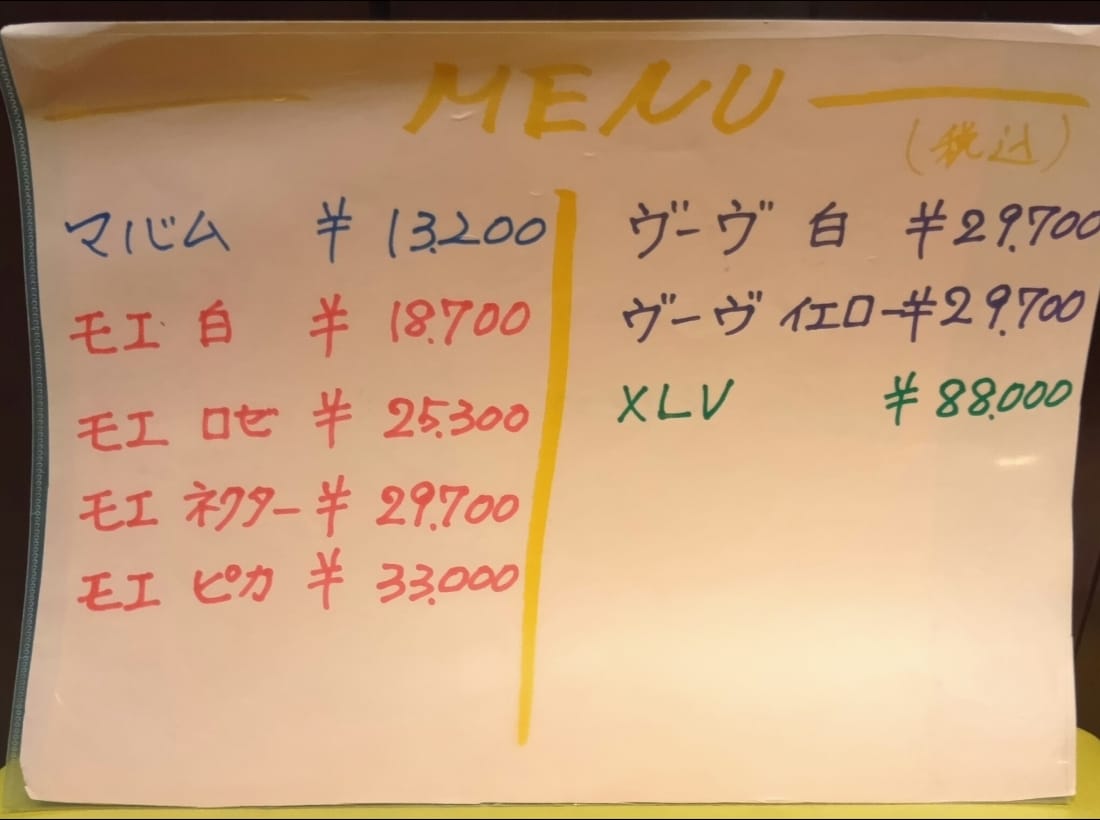 MENU
(税込)
マバム ¥ 13.200
モエ 白 ¥ 18.700
モエ ロゼ ¥ 25.300
モエ ネクター ¥ 29.700
モエ ピカ ¥ 33.000
ヴーヴ 白 ¥29.700
ヴーヴ イエロー ¥29.700
XLV ¥ 88.000